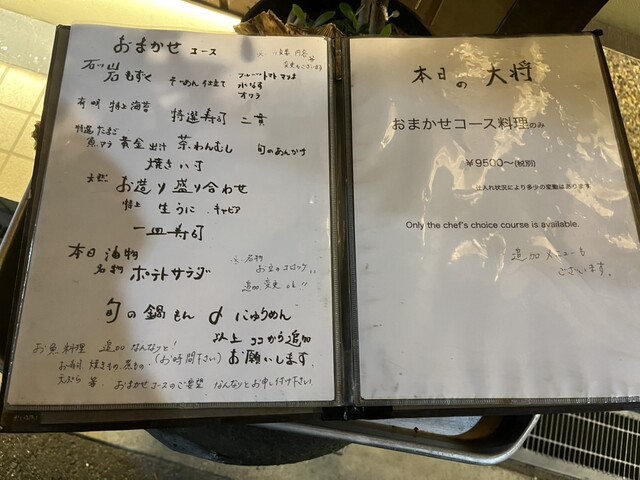 おまかせ コース
※ 内容等
変更もございます
石ッ 岩もずく そーめん仕立て
フルーツトマトマリネ
水なす
オクラ
有明 特上海苔 特選寿司 二貫
特選たまご
魚アラ 黄金出汁 茶わんむし 旬のあんかけ
焼き〆寸
天然 お造り盛り合わせ
特上 生うに . キャビア
一皿寿司
本日 油物
名物 ポテトサラダ
※ 名物
お豆のコロッケ
追加 変更 ok!!
旬の鍋もん 〆にゅうめん
以上 ココから追加
お願いします
お魚料理 追加なんなりと!
お寿司 焼きもの.煮もの. (お時間下さい)
天ぷら 等. おまかせコースのご要望 なんなりとお申し付け下さい
本日の大将
おまかせコース料理のみ
¥9500～(税別)
仕入れ状況により多少の変動はあります
Only the chef's choice course is available.
追加メニューも
ございます。